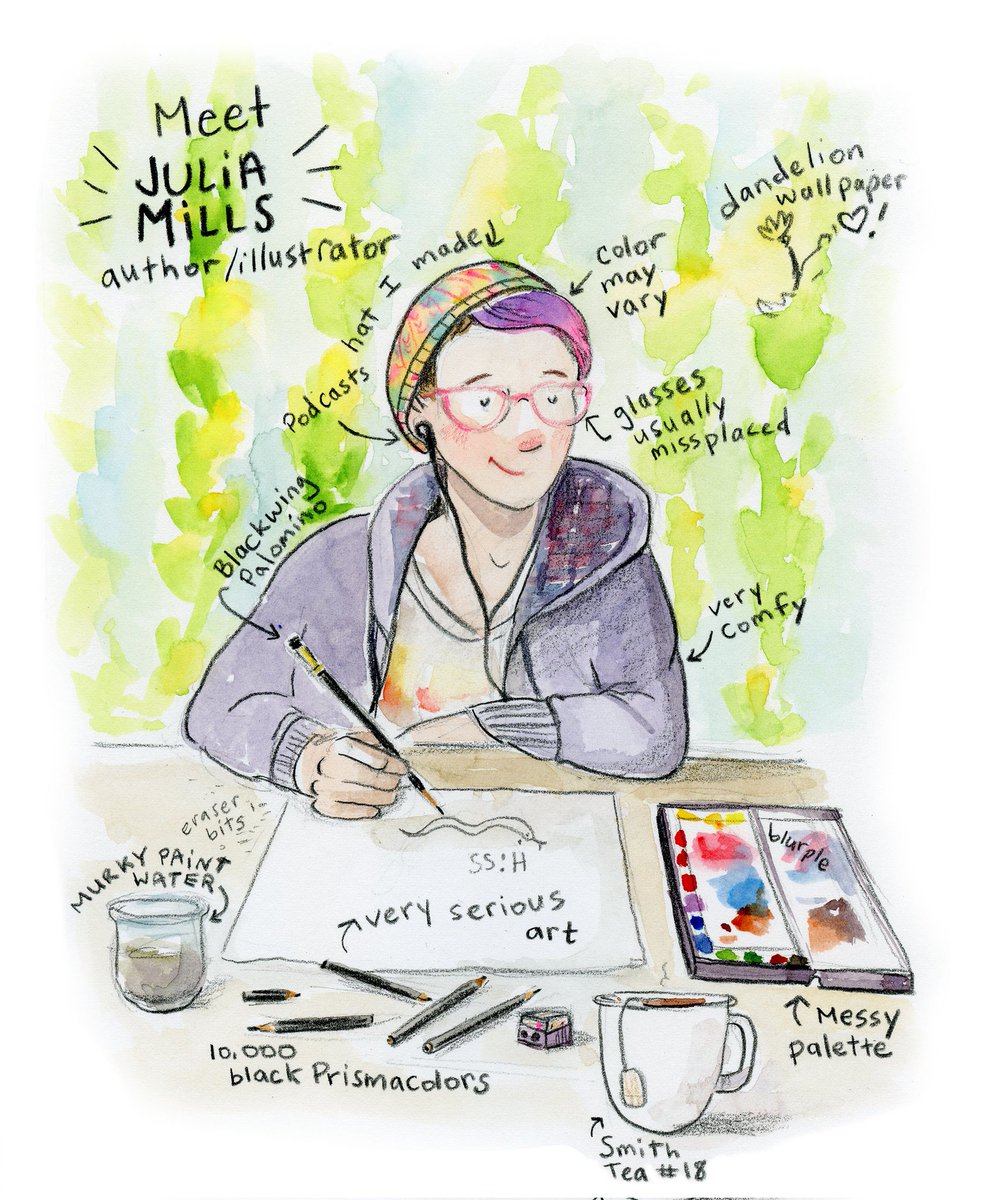 Meet
JULIA
MILLS
author/illustrator
hat I made
Podcasts
color
may
vary
dandelion
wallpaper
!
glasses
usually
missplaced
Blackwing
Palomino
very
comfy
eraser
bits
MURKY PAINT
WATER
SS:H
very serious
art
blurple
Messy
palette
10,000
black Prismacolors
Smith
Tea #18